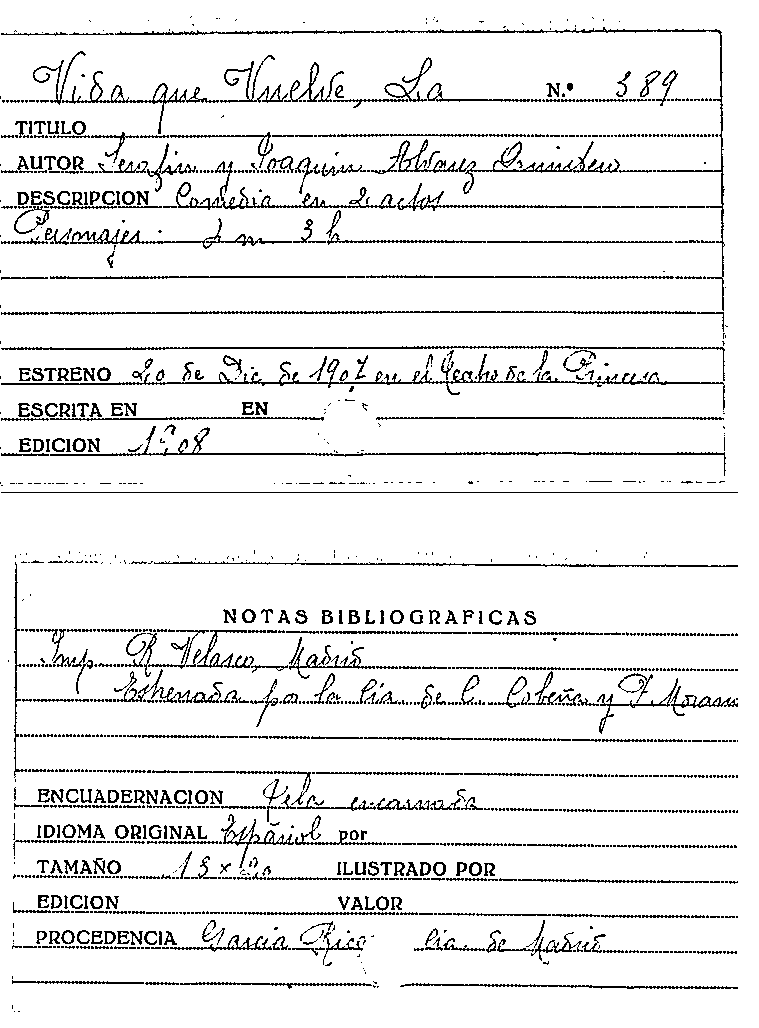 Vida que Vuelve, La N.º 389
TITULO
AUTOR Serafin y Joaquin Alvarez Quintero
DESCRIPCION Comedia en 2 actos
Personajes: m 3 h
ESTRENO 20 de Dic. de 1907 en el Teatro de la Princesa
ESCRITA EN EN
EDICION 1ª 08
NOTAS BIBLIOGRAFICAS
Imp. R. Velasco, Madrid
Estrenada por la Cia. de C. Cobeña y F. Morano
ENCUADERNACION Tela encarnada
IDIOMA ORIGINAL Español por
TAMAÑO 13 x 20 ILUSTRADO POR
EDICION VALOR
PROCEDENCIA Garcia Rico Cia. de Madrid